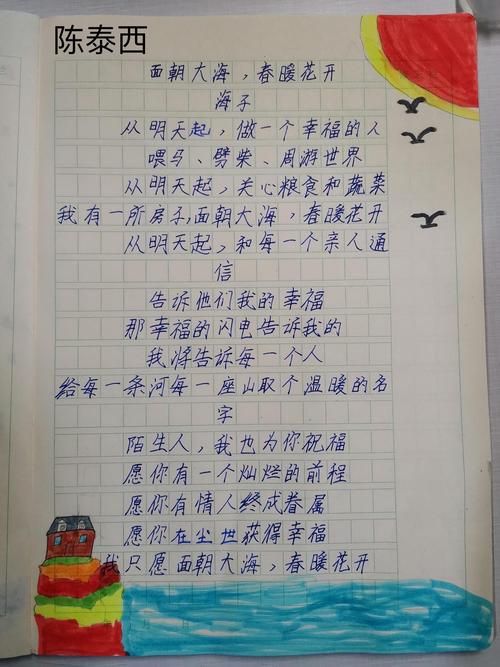 陈泰西
面朝大海，春暖花开
海子
从明天起，做一个幸福的人
喂马、劈柴、周游世界
从明天起，关心粮食和蔬菜
我有一所房子，面朝大海，春暖花开
从明天起，和每一个亲人通
信
告诉他们我的幸福
那幸福的闪电告诉我的
我将告诉每一个人
给每一条河每一座山取个温暖的名
字
陌生人，我也为你祝福
愿你有一个灿烂的前程
愿你有情人终成眷属
愿你在尘世获得幸福
我只愿面朝大海，春暖花开